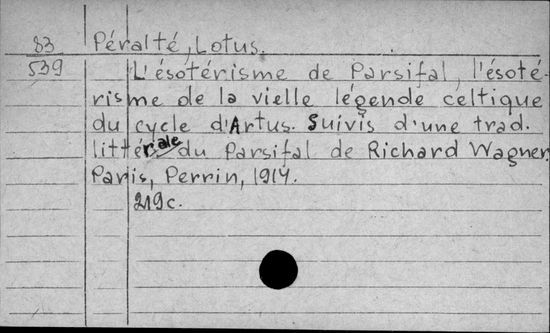 83 Péralté, Lotus.
539 L'ésotérisme de Parsifal, l'ésoté-
risme de la vielle légende celtique
du cycle d'Artus. Suivis d'une trad.
littérale du Parsifal de Richard Wagner.
Paris, Perrin, 1914.
219c.